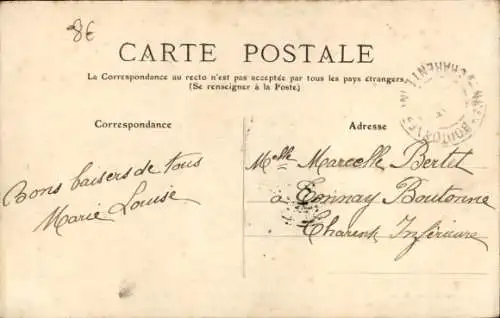 8€
CARTE POSTALE
La Correspondance au recto n'est pas acceptée par tous les pays étrangers
(Se renseigner à la Poste)
Correspondance
Adresse
Bons baisers de tous
Marie Louise
Melle Marcelle Bertet
à Tonnay Boutonne
Charente Inférieure